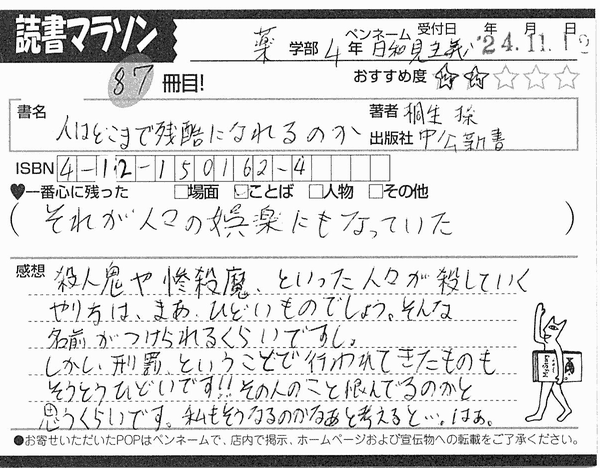 読書マラソン
薬 学部 4 年 ペンネーム 日和見主義 受付日 '24年11月1
87冊目! おすすめ度 ★★☆☆☆
書名 人はどこまで残酷になれるのか 著者 桐生 操
出版社 中公新書
ISBN 4-12-150162-4
♥一番心に残った □場面 ☑ことば □人物 □その他
(それが人々の娯楽にもなっていた)
感想 殺人鬼や惨殺魔、といった人々が殺していく
やり方は、まあ、ひどいものでしょう。そんな
名前がつけられるくらいですし。
しかし、刑罰、ということで行われてきたものも
そうとうひどいです!!その人のこと恨んでるのかと
思うくらいです。私もそうなるのかなぁと考えると…。はぁ。
●お寄せいただいたPOPはペンネームで、店内で掲示、ホームページおよび宣伝物への転載をご了承ください。